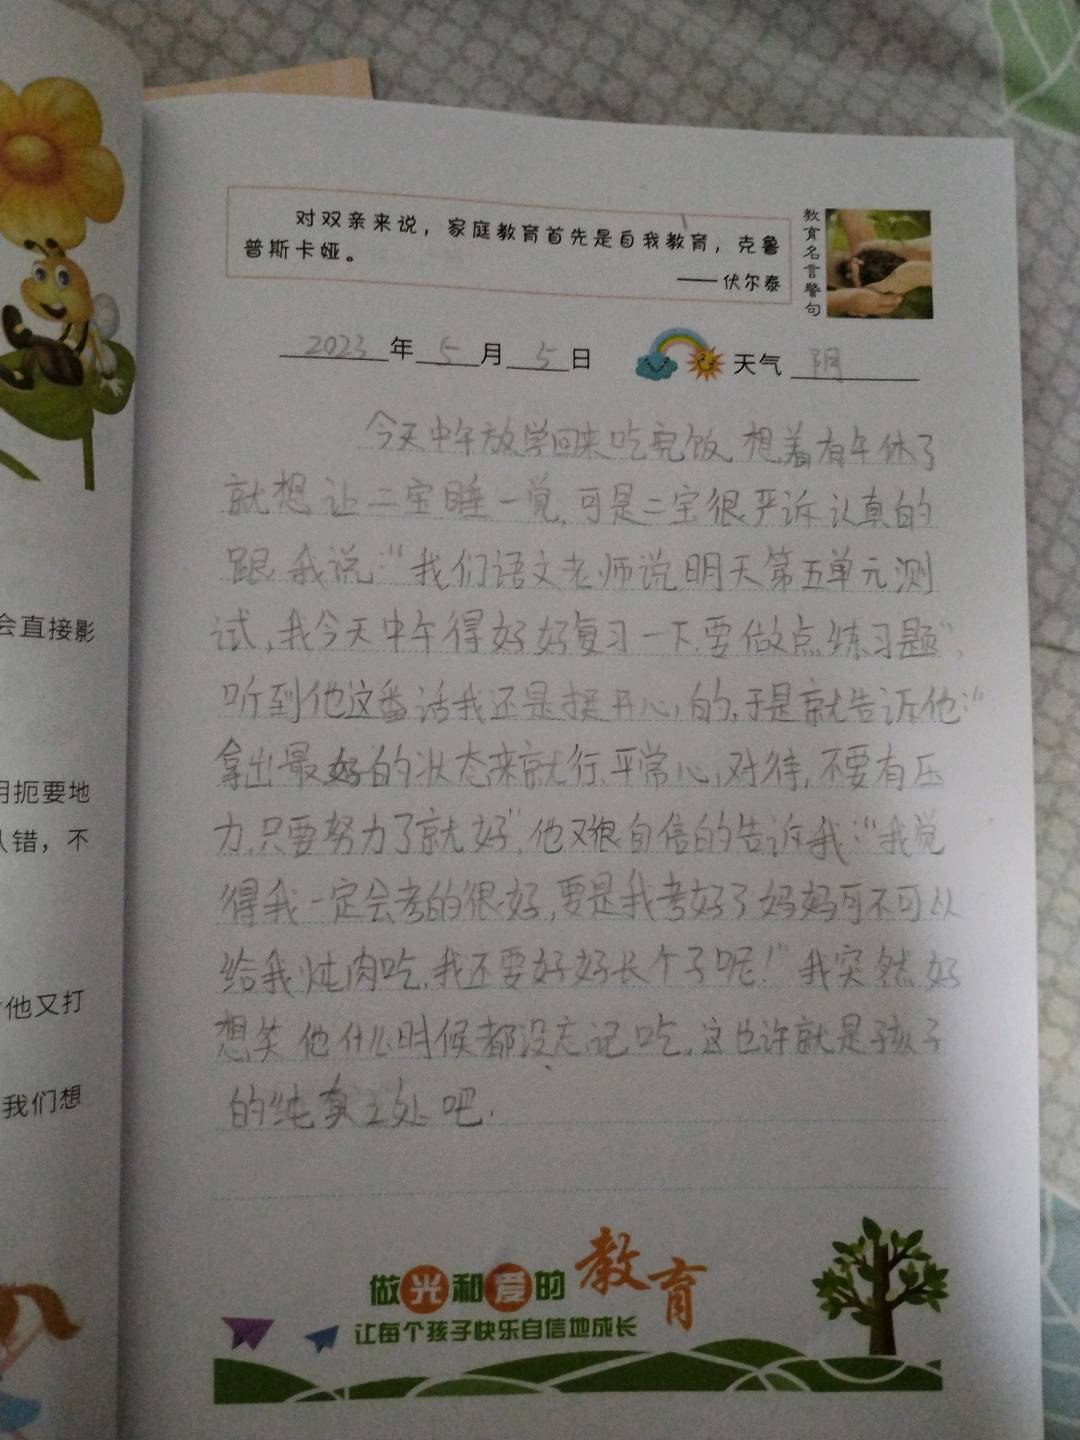 对双亲来说，家庭教育首先是自我教育，克鲁
普斯卡娅。
——伏尔泰
教育名言警句
2023年5月5日 天气 阴
今天中午放学回来吃完饭,想着有午休了
就想让二宝睡一觉,可是二宝很严诉认真的
跟我说:“我们语文老师说明天第五单元测
试,我今天中午得好好复习一下,要做点练习题”,
听到他这番话我还是挺开心,的,于是就告诉他:“
拿出最好的状态来就行,平常心,对待,不要有压
力,只要努力了就好”,他又很自信的告诉我:“我觉
得我一定会考的很好,要是我考好了妈妈可不可以
给我炖肉吃,我还要好好长个子呢!”我突然好
想笑 他什么时候都没忘记吃,这也许就是孩子
的纯真之处吧.
做光和爱的教育
让每个孩子快乐自信地成长
会直接影
明扼要地
认错，不
他又打
我们想